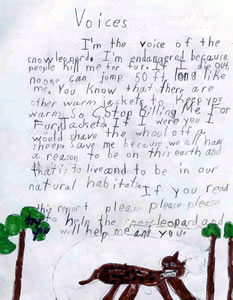 Voices
I'm the voice of the
snow leopard. I'm endangered because
people kill me for fur. If I die out,
no one can jump 50 ft long like
me. You know that there are
other warm jackets to keep you
warm. So Stop killing Me For
For Jackets. If I were you I
would shave the whoul off a
sheep. Save me because we all have
a reason to be on this earth and
that is to live and to be in our
natural habitats. If you read
this report please please please
to help the snow leopard and
will help me and you.